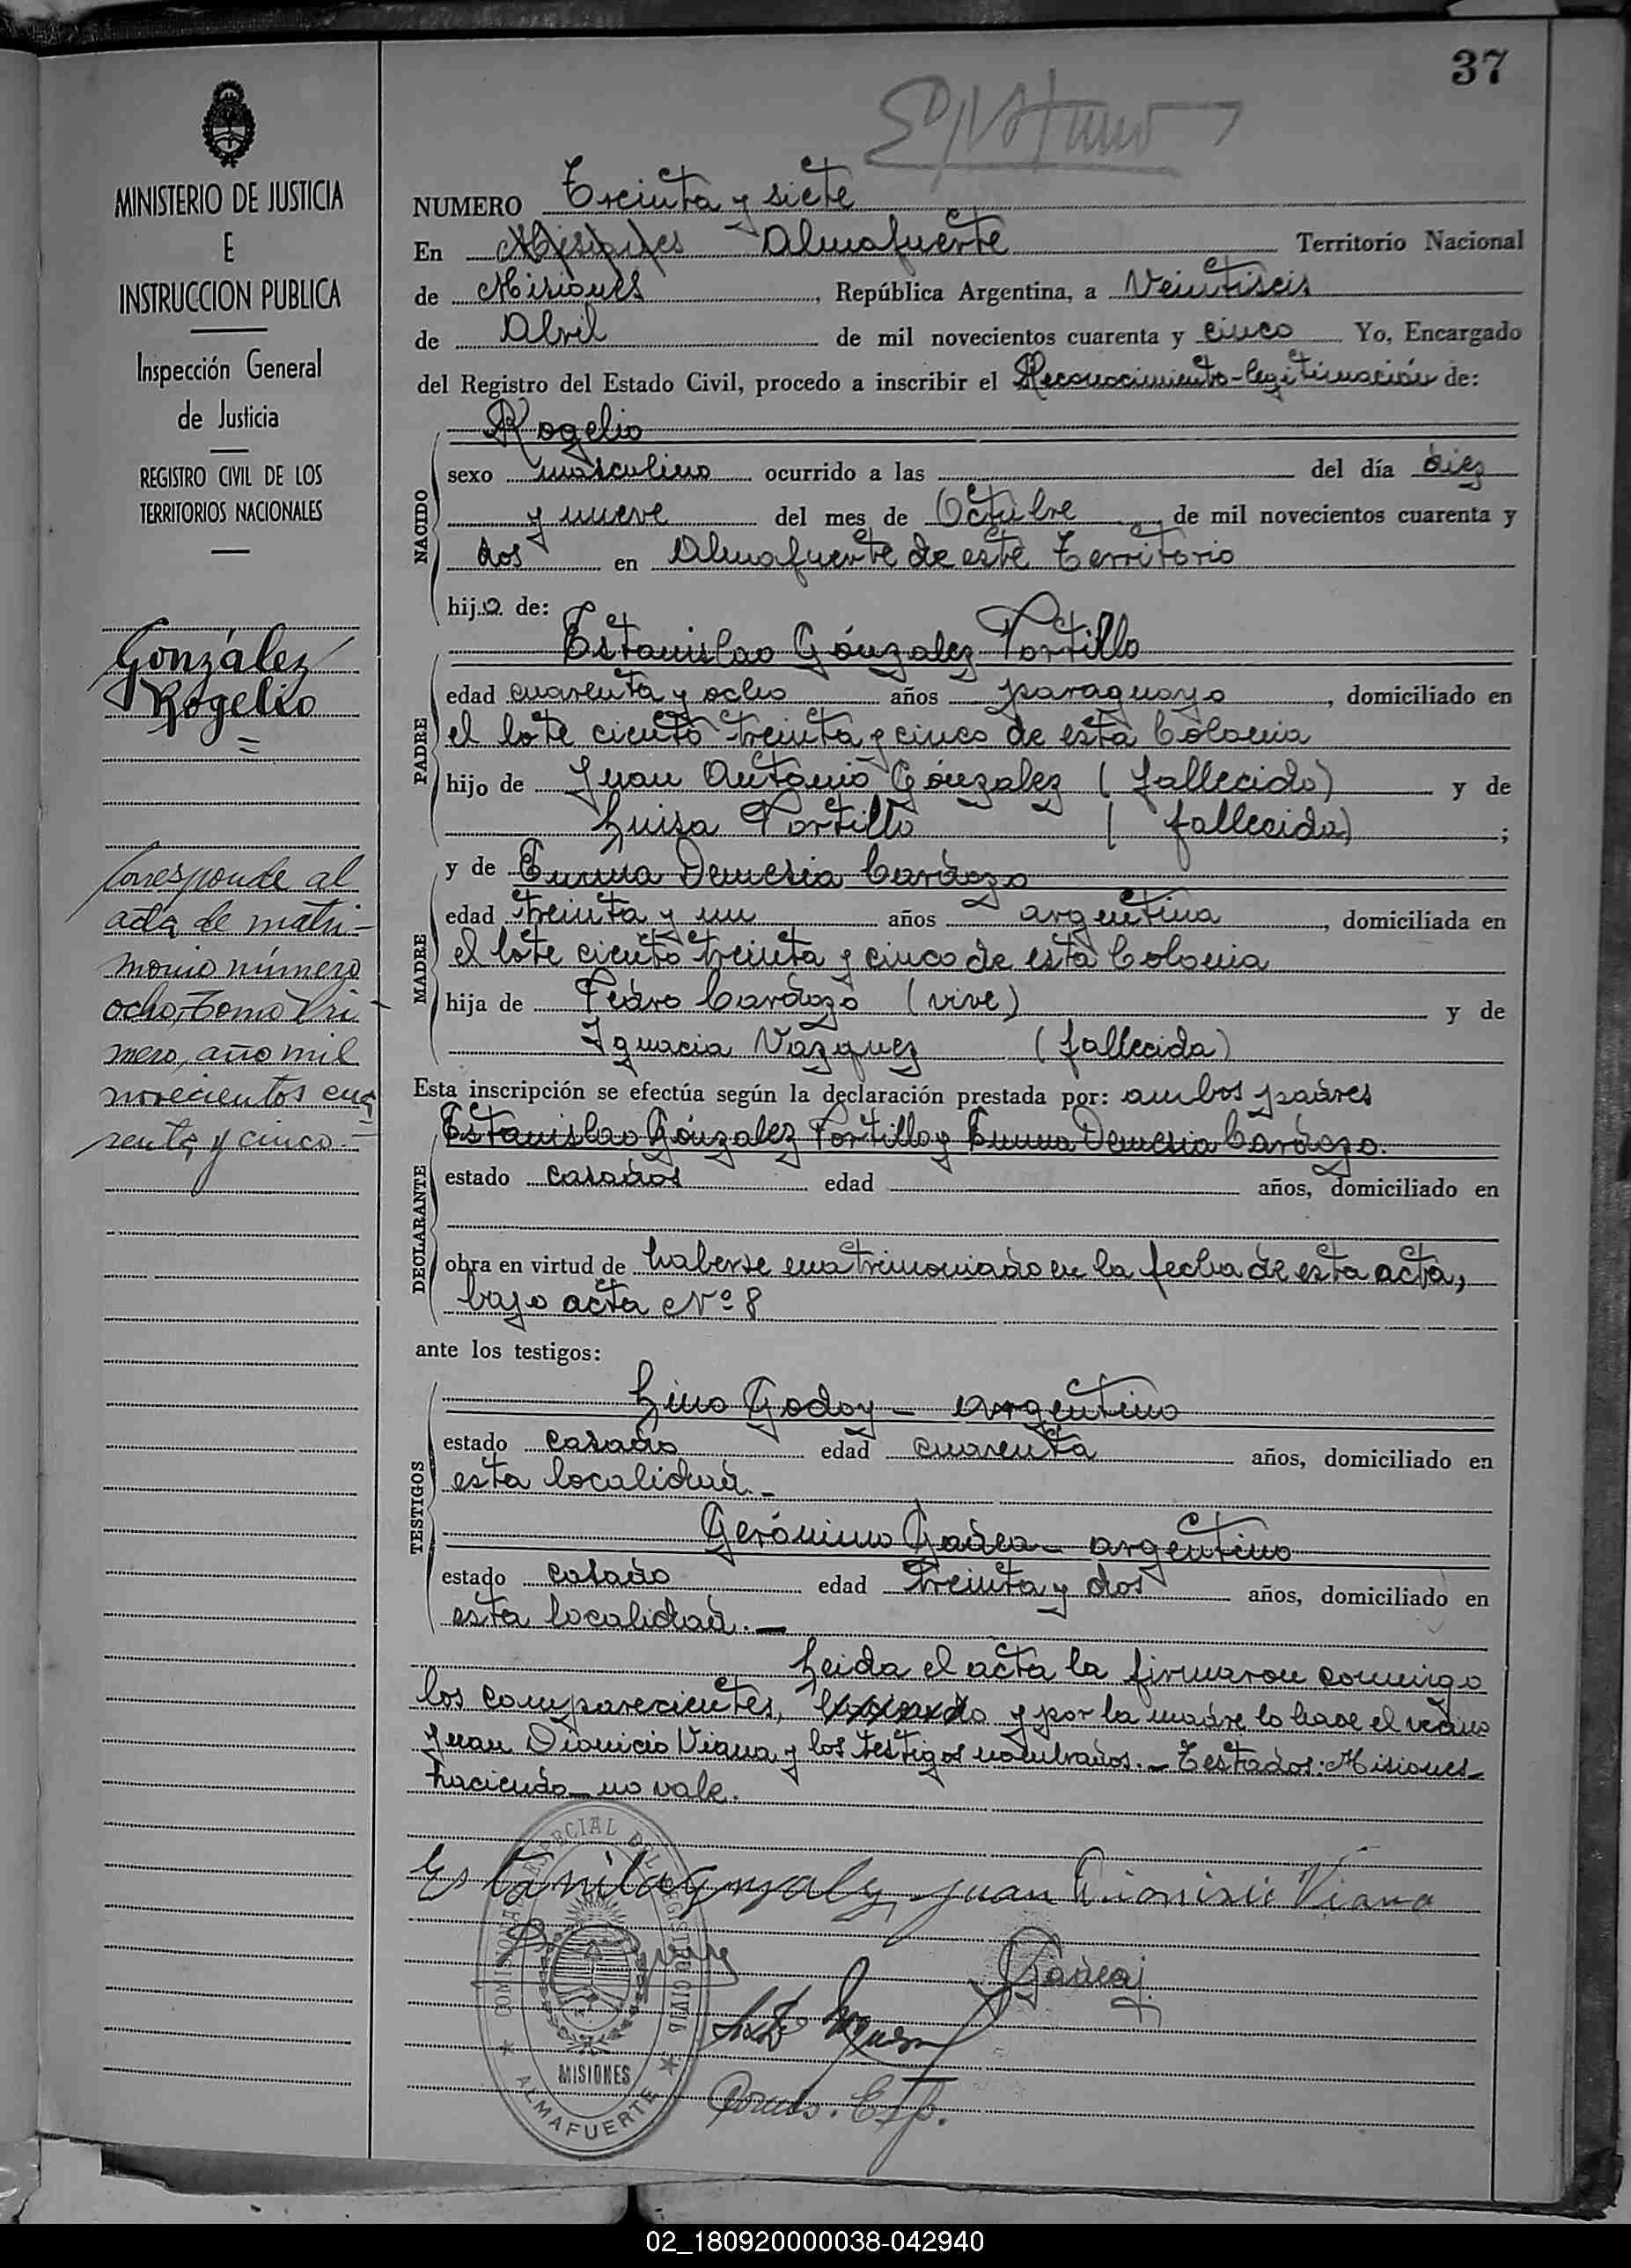 37
MINISTERIO DE JUSTICIA
E
INSTRUCCION PUBLICA
Inspección General
de Justicia
REGISTRO CIVIL DE LOS
TERRITORIOS NACIONALES
González
Rogelio
Corresponde al
acta de matri-
monio número
ocho, Tomo Pri-
mero, año mil
novecientos cua
renta y cinco.-
NUMERO Treinta y siete
En Misiones Almafuerte Territorio Nacional
de Misiones, República Argentina, a Veintiseis
de Abril de mil novecientos cuarenta y cinco Yo, Encargado
del Registro del Estado Civil, procedo a inscribir el Reconocimiento-legitimación de:
NACIDO
Rogelio
sexo masculino ocurrido a las del día diez
y nueve del mes de Octubre de mil novecientos cuarenta y
dos en Almafuerte de este Territorio
hijo de:
PADRE
Estanislao Gónzalez Portillo
edad cuarenta y ocho años paraguayo, domiciliado en
el lote ciento treinta y cinco de esta Colonia
hijo de Juan Antonio Gónzalez (fallecido) y de
Luisa Portillo (fallecida);
MADRE
y de Emma Demesia Cardozo
edad treinta y un años argentina, domiciliada en
el lote ciento treinta y cinco de esta Colonia
hija de Pedro Cardozo (vive) y de
Ignacia Vazquez (fallecida)
Esta inscripción se efectúa según la declaración prestada por: ambos padres
DECLARANTE
Estanislao Gónzalez Portillo y Emma Demesia Cardozo.
estado casados edad años, domiciliado en
obra en virtud de haberse matrimoniado en la fecha de esta acta,
bajo acta Nº 8
ante los testigos:
TESTIGOS
Lino Godoy - argentino
estado casado edad cuarenta años, domiciliado en
esta localidad.-
Gerónimo Gadea - argentino
estado casado edad treinta y dos años, domiciliado en
esta localidad.-
Leida el acta la firmaron conmigo
los comparecientes, haciendo y por la madre lo hace el vecino
Juan Dionicio Viana y los testigos nombrados.- Testados: Misiones-
haciendo-no vale.
Estanilao Gonzalez Juan Dionisio Viana
Gadea
Comis. Esp.
COMISARIA ESPECIAL DEL REGISTRO CIVIL
MISIONES
ALMAFUERTE
02_180920000038-042940